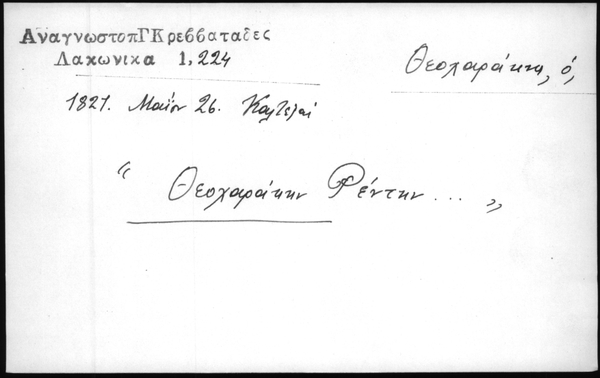 ΑναγνωστοπΓΚρεββαταδες
Λακωνικα 1,224
Θεοχαράκης, ὁ,
1821. Μαΐου 26. Καλτεζαί
“ Θεοχαράκην Ρέντην ... „